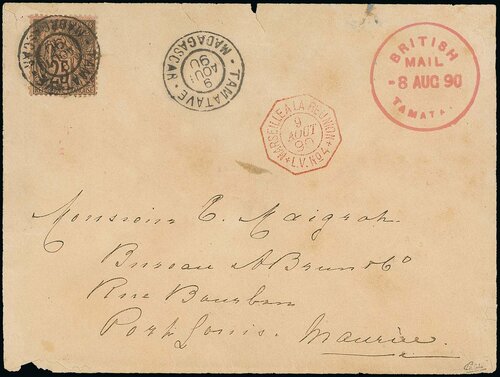 TAMATAVE
9 AOUT 90
MADAGASCAR
BRITISH
MAIL
-8 AUG 90
TAMATA.
MARSEILLE À LA RÉUNION
9
AOUT
90
L.V. No 4
Monsieur C. Maigrot
Bureau A Brun & Co
Rue Bourbon
Port Louis.
Maurice